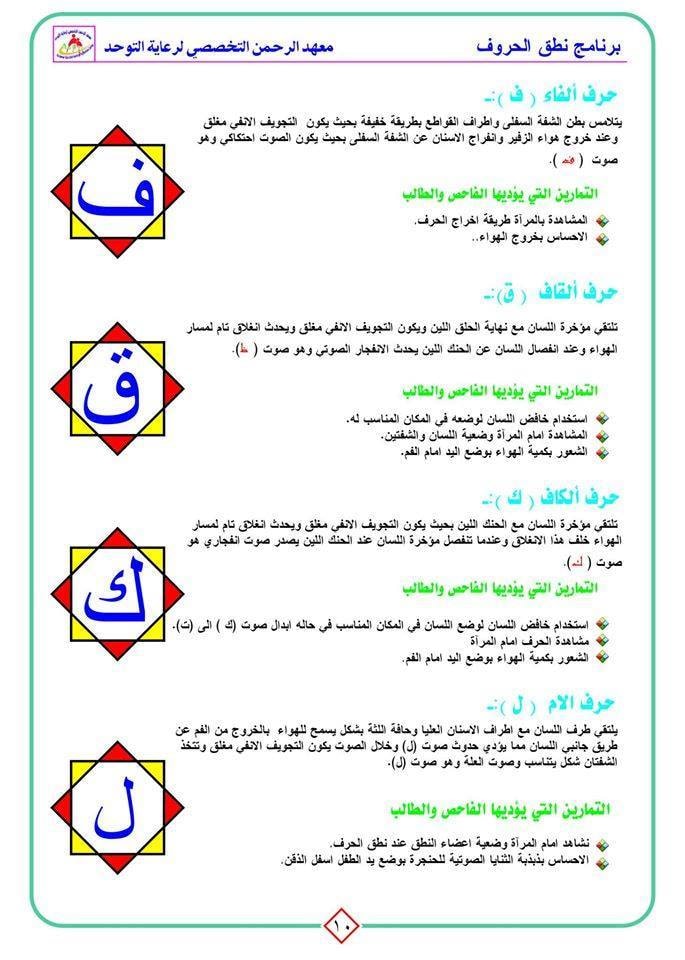 برنامج نطق الحروف
معهد الرحمن التخصصي لرعاية التوحد
حرف ألفاء ( ف ):ـ
يتلامس بطن الشفة السفلى واطراف القواطع بطريقة خفيفة بحيث يكون التجويف الانفي مغلق
وعند خروج هواء الزفير وانفراج الاسنان عن الشفة السفلى بحيث يكون الصوت احتكاكي وهو
صوت ( ).
التمارين التي يؤديها الفاحص والطالب
المشاهدة بالمرآة طريقة اخراج الحرف.
الاحساس بخروج الهواء..
ف
حرف ألقاف ( ق):ـ
تلتقي مؤخرة اللسان مع نهاية الحلق اللين ويكون التجويف الانفي مغلق ويحدث انغلاق تام لمسار
الهواء وعند انفصال اللسان عن الحنك اللين يحدث الانفجار الصوتي وهو صوت ( ).
التمارين التي يؤديها الفاحص والطالب
استخدام خافض اللسان لوضعه في المكان المناسب له.
المشاهدة امام المرآة وضعية اللسان والشفتين.
الشعور بكمية الهواء بوضع اليد امام الفم.
ق
حرف ألكاف ( ك ):ـ
تلتقي مؤخرة اللسان مع الحنك اللين بحيث يكون التجويف الانفي مغلق ويحدث انغلاق تام لمسار
الهواء خلف هذا الانغلاق وعندما تنفصل مؤخرة اللسان عند الحنك اللين يصدر صوت انفجاري هو
صوت ( ).
التمارين التي يؤديها الفاحص والطالب
استخدام خافض اللسان لوضع اللسان في المكان المناسب في حاله ابدال صوت (ك ) الى (ت).
مشاهدة الحرف امام المرآة
الشعور بكمية الهواء بوضع اليد امام الفم.
ك
حرف الام ( ل ):ـ
يلتقي طرف اللسان مع اطراف الاسنان العليا وحافة اللثة بشكل يسمح للهواء بالخروج من الفم عن
طريق جانبي اللسان مما يؤدي حدوث صوت (ل) وخلال الصوت يكون التجويف الانفي مغلق وتتخذ
الشفتان شكل يتناسب وصوت العلة وهو صوت (ل).
التمارين التي يؤديها الفاحص والطالب
نشاهد امام المرآة وضعية اعضاء النطق عند نطق الحرف.
الاحساس بذبذبة الثنايا الصوتية للحنجرة بوضع يد الطفل اسفل الذقن.
ل
١٠